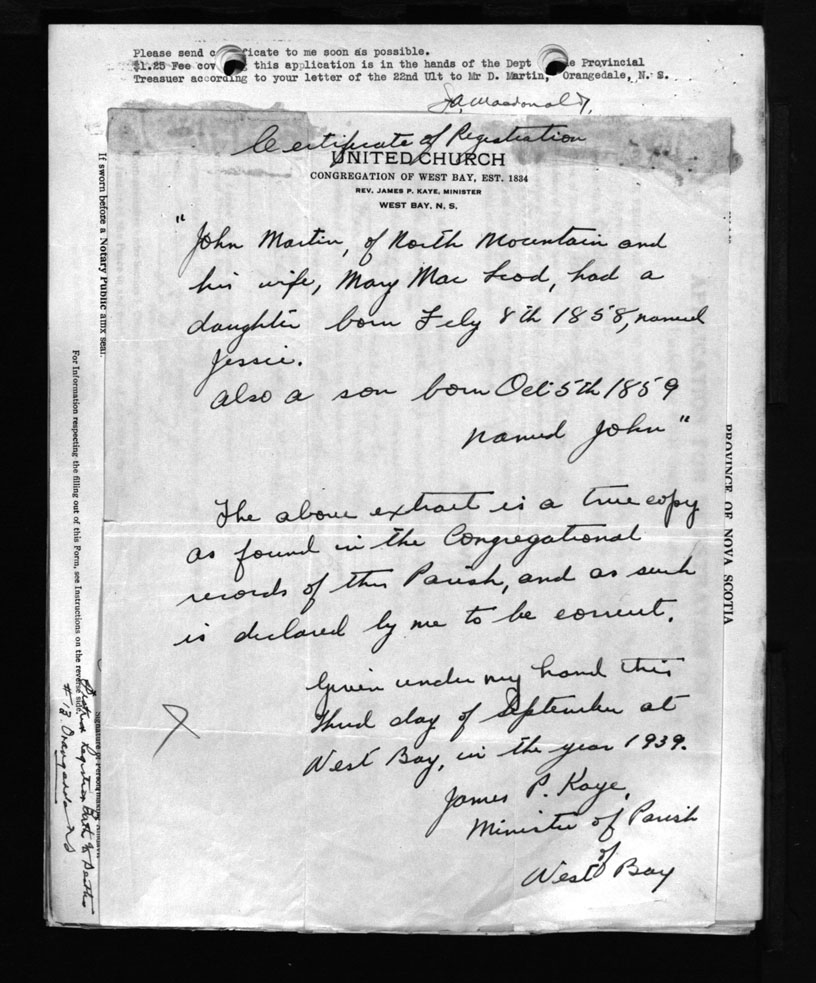 Please send c ficate to me soon as possible.
$1.25 Fee cov g this application is in the hands of the Dept e Provincial
Treasurer according to your letter of the 22nd Ult to Mr D. Martin, Orangedale, N. S.
J.A. Macdonald,
Certificate of Registration
UNITED CHURCH
CONGREGATION OF WEST BAY, EST. 1834
REV. JAMES P. KAYE, MINISTER
WEST BAY, N. S.
"John Martin, of North Mountain and
his wife, Mary Mac Leod, had a
daughter born Feby 8th 1858, named
Jessie.
also a son born Oct 5th 1859
named John"
The above extract is a true copy
as found in the Congregational
records of this Parish, and as such
is declared by me to be correct.
Given under my hand this
third day of September at
West Bay, in the year 1939.
James P. Kaye,
Minister of Parish
of
West Bay
If sworn before a Notary Public affix seal.
For Information respecting the filling out of this Form, see Instructions on the reverse side.
Signature of Person making
Registrar Births & Deaths
# 13 Orangedale N S
PROVINCE OF NOVA SCOTIA